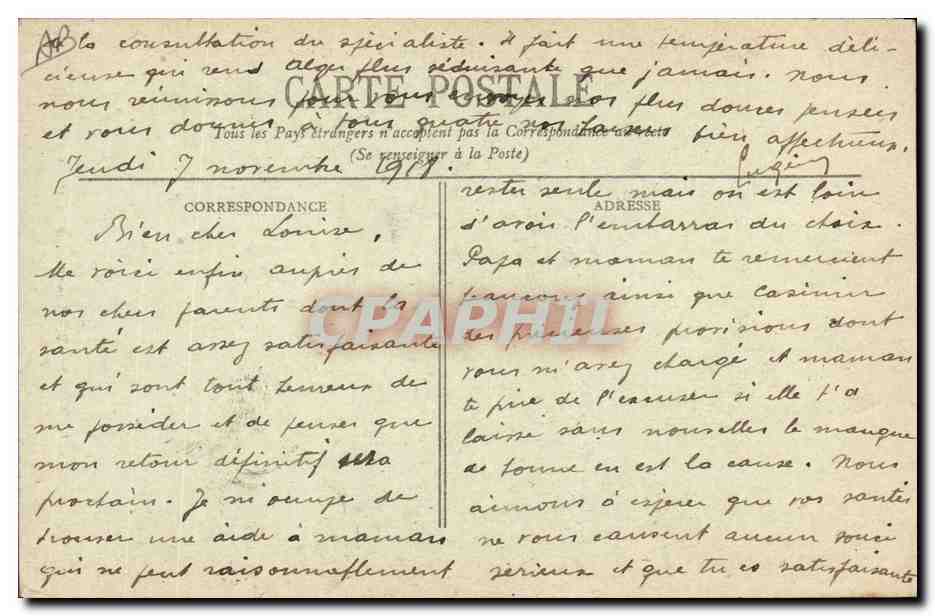 Jeudi 7 novembre 1918.
Bien chère Louise,
Me voici enfin auprès de
nos chers parents dont la
santé est assez satisfaisante
et qui sont tout heureux de
me posséder et de penser que
mon retour définitif sera
prochain. Je m'occupe de
trouver une aide à maman
qui ne peut raisonnablement
rester seule mais on est loin
d'avoir l'embarras du choix.
Papa et maman te remercient
beaucoup ainsi que Casimir
des précieuses provisions dont
vous m'avez chargé et maman
te prie de l'excuser si elle t'a
laissé sans nouvelles le manque
de bonne en est la cause. Nous
aimons à espérer que vos santés
ne vous causent aucun souci
sérieux et que tu es satisfaisante
de la consultation du spécialiste. Il fait une température déli-
cieuse qui rend Alger plus séduisante que jamais. Nous
nous réunissons pour vous envoyer nos plus douces pensées
et vous donner à tous quatre nos baisers bien affectueux.
CARTE POSTALE
Tous les Pays étrangers n'acceptent pas la Correspondance au recto
(Se renseigner à la Poste)
CORRESPONDANCE
ADRESSE
CPAPHIL
AB